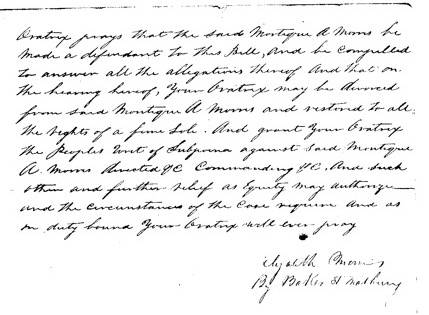 Oratrix prays that the said Montique A Morris be
made a defendant to this Bill, And be compelled
to answer all the allegations thereof And that on
the hearing hereof, Your Oratrix may be divorced
from said Montique A Morris and restored to all
the rights of a fime Sole. And grant Your Oratrix
the Peoples Writ of Subpoena against Said Montique
A. Morris directed &C Commanding &C. And such
other and further relief as Equity may authorize
and the circumstances of the Case require and as
in duty bound Your Oratrix will ever pray
Elyzabeth Morris
By Baker &